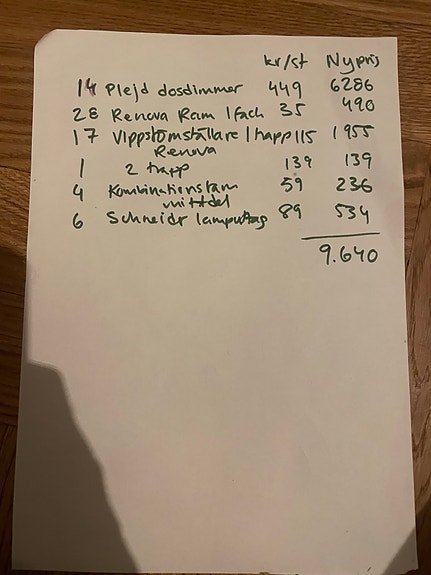 kr/st Nypris
14 Plejd dosdimmer 449 6286
28 Renova Ram 1 fach 35 490
17 Vippströmställare 1 trapp 115 1955
Renova
1 2 trapp 139 139
4 Kombinationsram 59 236
mittdel
6 Schneidr lamputtag 89 534
9.640